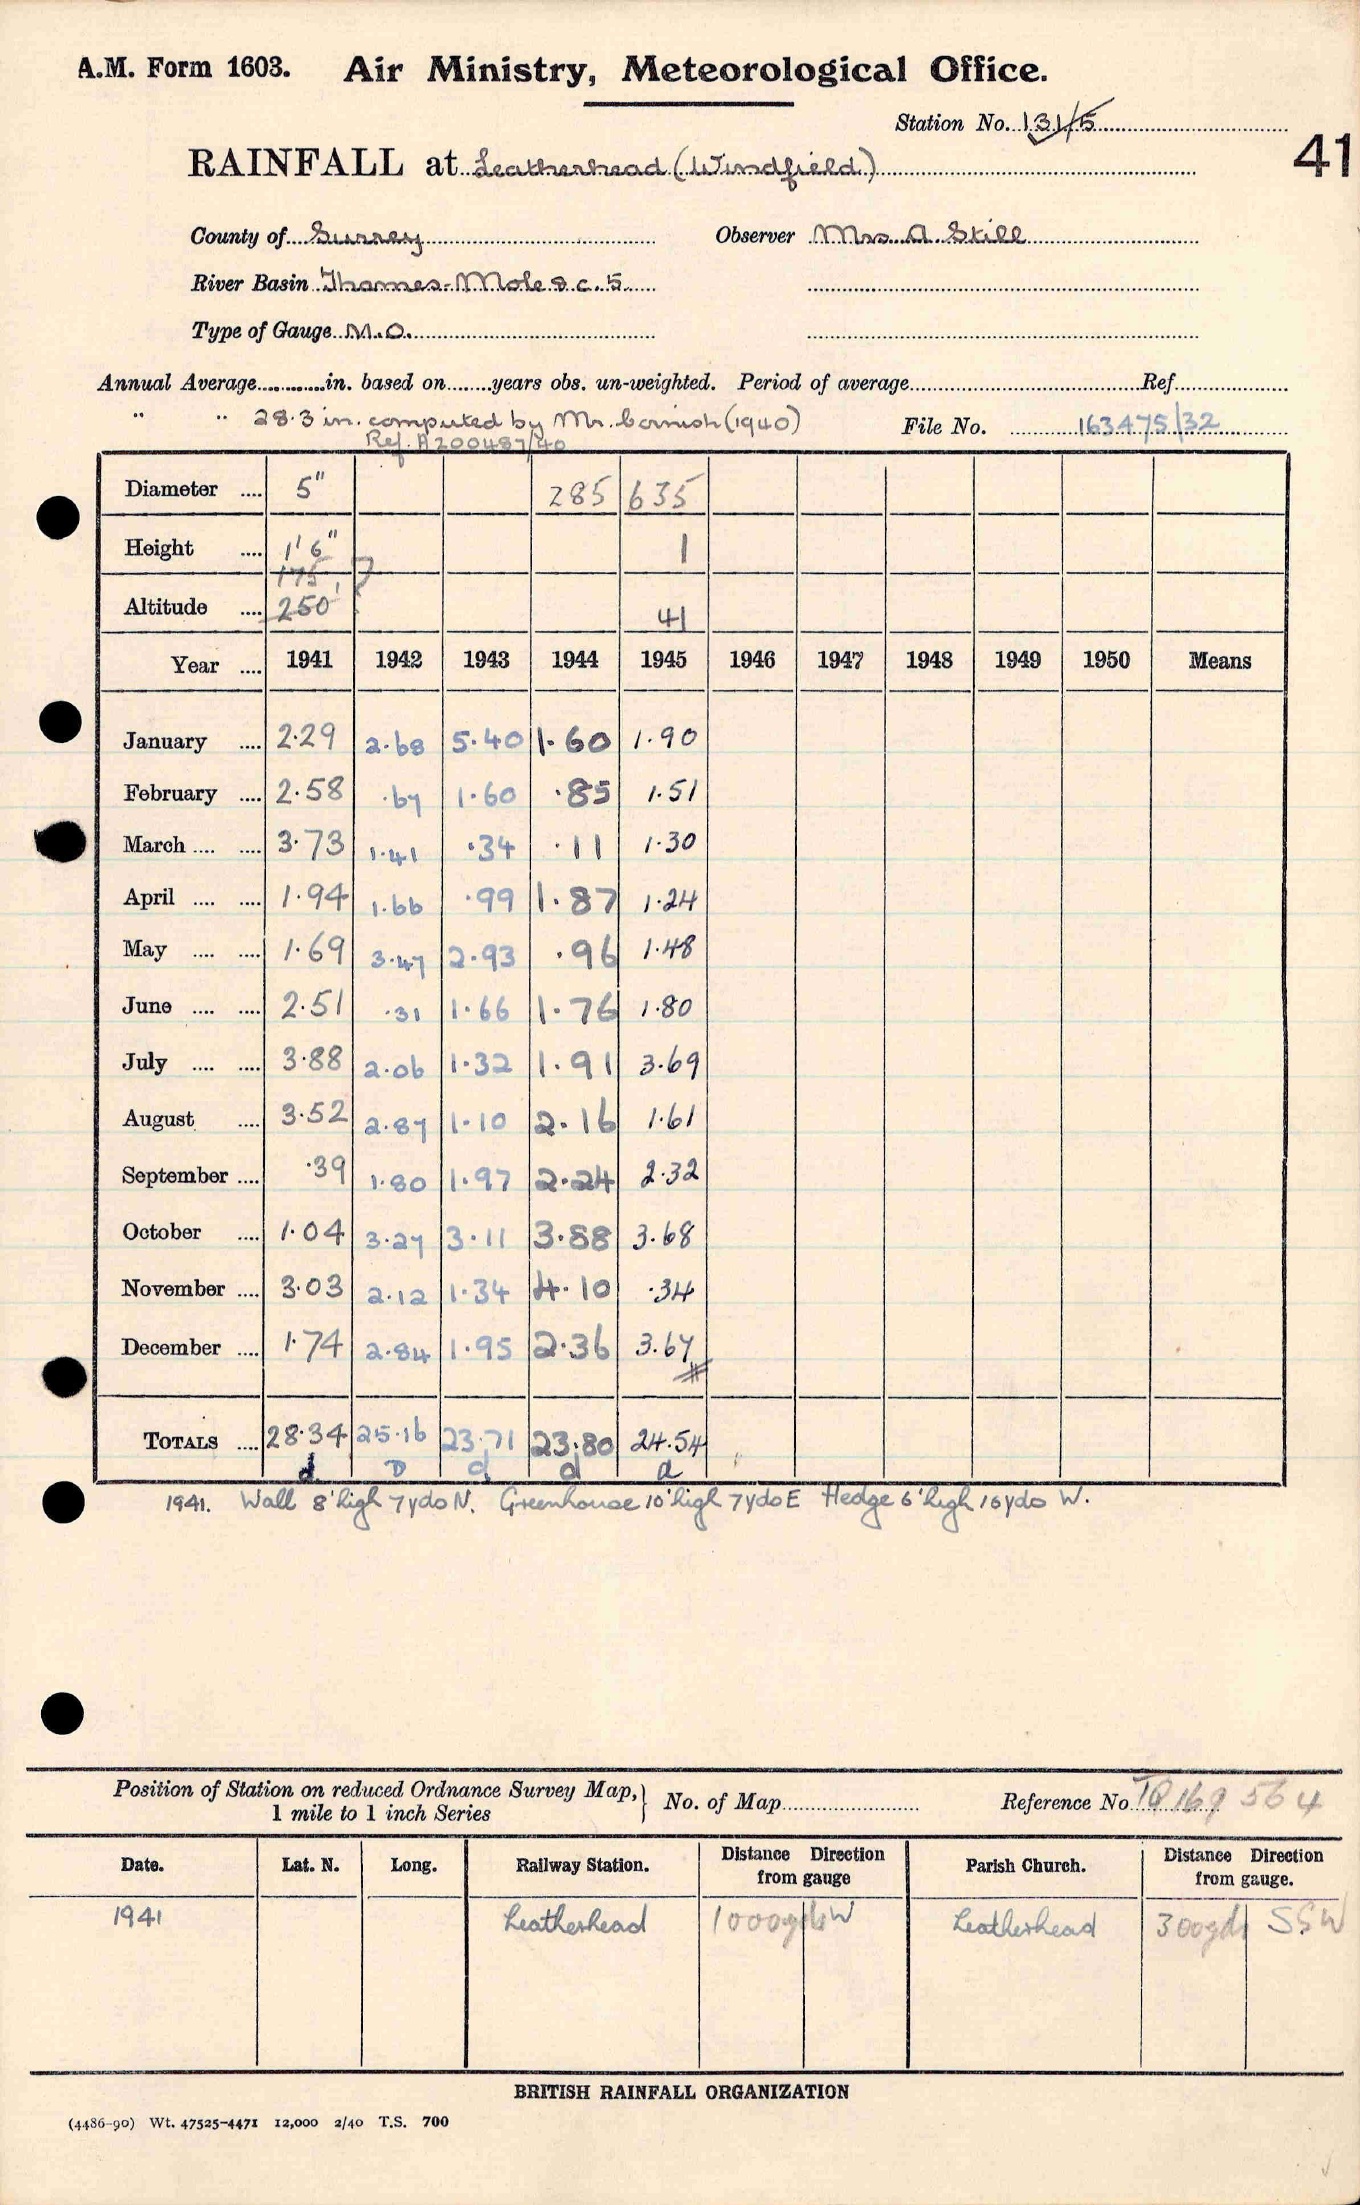 A.M. Form 1603. Air Ministry, Meteorological Office.
Station No. 131/5
41
RAINFALL at Leatherhead (Windfield)
County of Surrey Observer Mrs A. Skill
River Basin Thames-Mole & c. 5
Type of Gauge M.O.
Annual Average in. based on years obs. un-weighted. Period of average Ref
" " 28.3 in. computed by Mr. Cornish (1940) File No. 163475/32
Ref. A200487/40
Diameter 5" 285 635
Height 1' 6" 1
175 ?
Altitude 250' 41
Year 1941 1942 1943 1944 1945 1946 1947 1948 1949 1950 Means
January 2.29 2.68 5.40 1.60 1.90
February 2.58 .67 1.60 .85 1.51
March 3.73 1.41 .34 .11 1.30
April 1.94 1.66 .99 1.87 1.24
May 1.69 3.47 2.93 .96 1.48
June 2.51 .31 1.66 1.76 1.80
July 3.88 2.06 1.32 1.91 3.69
August 3.52 2.87 1.10 2.16 1.61
September .39 1.80 1.97 2.24 2.32
October 1.04 3.27 3.11 3.88 3.68
November 3.03 2.12 1.34 4.10 .34
December 1.74 2.84 1.95 2.36 3.67
TOTALS 28.34 25.16 23.71 23.80 24.54
d D d d d
1941. Wall 8' high 7 yds N. Greenhouse 10' high 7 yds E Hedge 6' high 16 yds W.
Position of Station on reduced Ordnance Survey Map, 1 mile to 1 inch Series } No. of Map Reference No TQ 169 564
Date. Lat. N. Long. Railway Station. Distance Direction from gauge Parish Church. Distance Direction from gauge.
1941 Leatherhead 1000yds W Leatherhead 300yds SSW
BRITISH RAINFALL ORGANIZATION
(4486-90) Wt. 47525-4471 12,000 2/40 T.S. 700